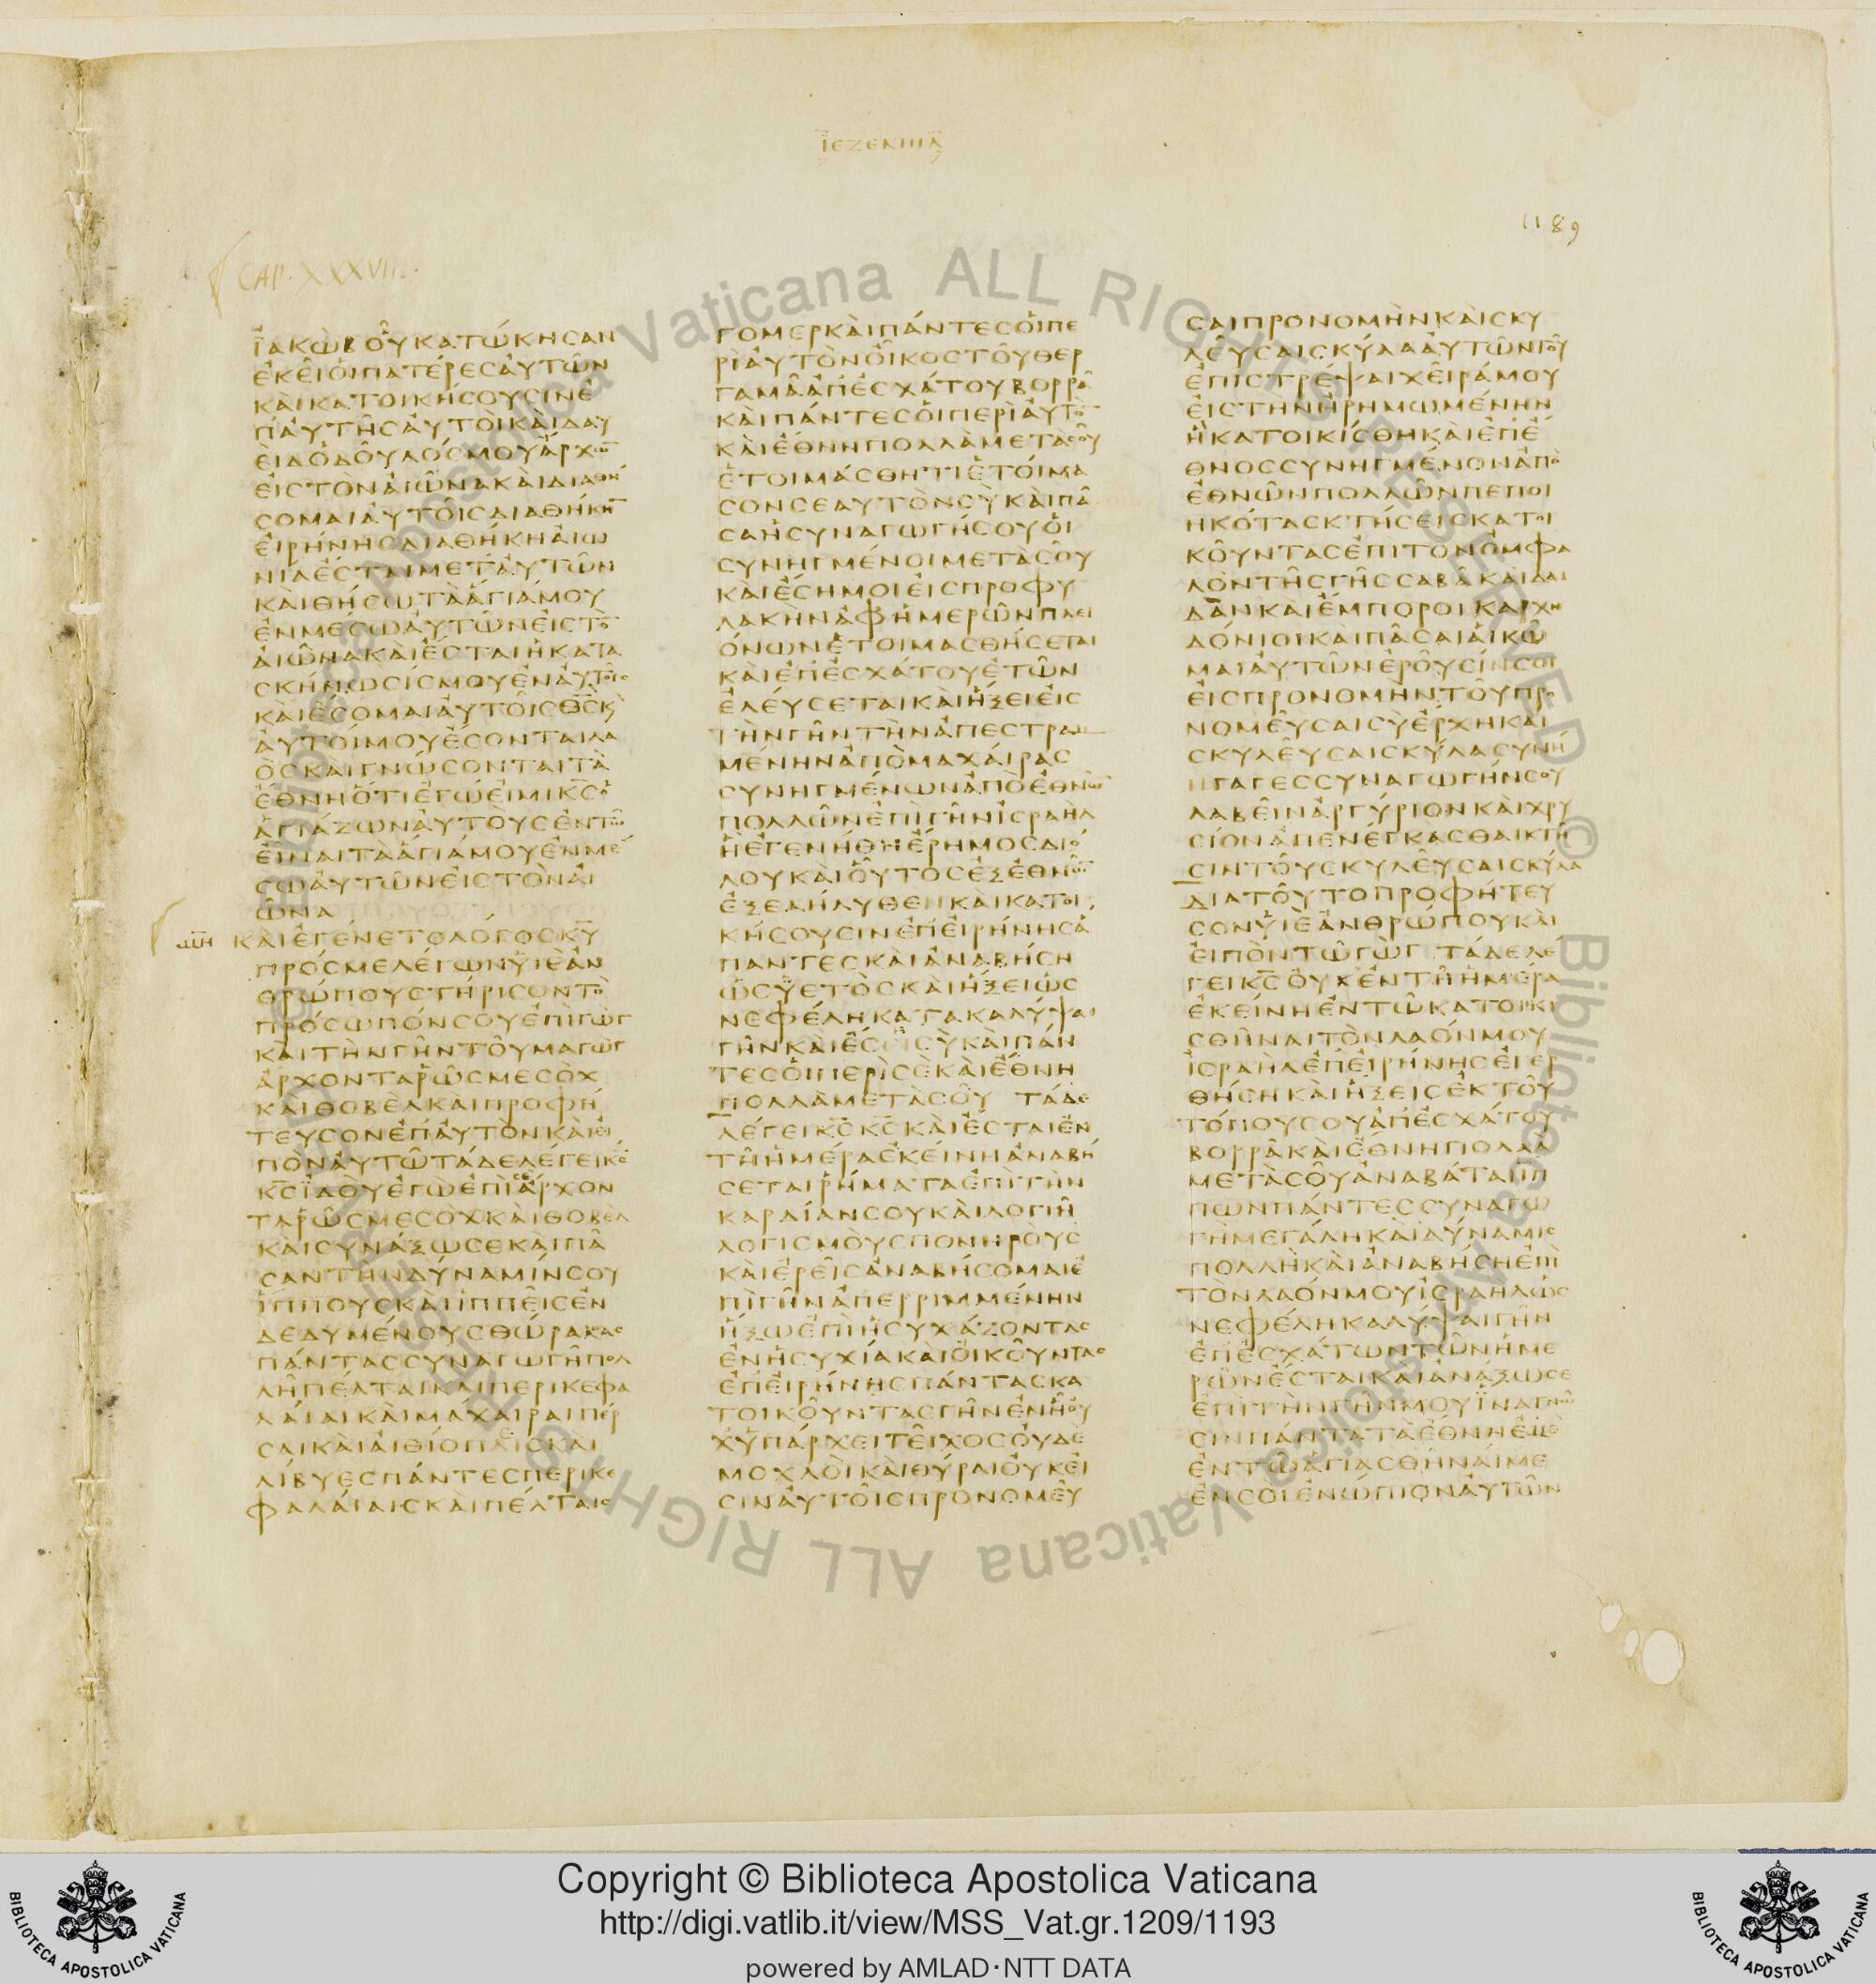 ΙΕΖΕΚΙΗΛ
1189
CAP. XXXVIII.
ΙΑΚΩΒΟΥΚΑΤΩΚΗΣΑΝ
ΕΚΕΙΟΙΠΑΤΕΡΕΣΑΥΤΩΝ
ΚΑΙΚΑΤΟΙΚΗΣΟΥΣΙΝΕ
ΠΑΥΤΗΣΑΥΤΟΙΚΑΙΔΑΥ
ΕΙΔΟΔΟΥΛΟΣΜΟΥΑΡΧΩ
ΕΙΣΤΟΝΑΙΩΝΑΚΑΙΔΙΑΘΗ
ΣΟΜΑΙΑΥΤΟΙΣΔΙΑΘΗΚΗ
ΕΙΡΗΝΗΣΔΙΑΘΗΚΗΑΙΩ
ΝΙΑΕΣΤΑΙΜΕΤΑΥΤΩΝ
ΚΑΙΘΗΣΩΤΑΑΓΙΑΜΟΥ
ΕΝΜΕΣΩΑΥΤΩΝΕΙΣΤΟ
ΑΙΩΝΑΚΑΙΕΣΤΑΙΗΚΑΤΑ
ΣΚΗΝΩΣΙΣΜΟΥΕΝΑΥΤΟΙΣ
ΚΑΙΕΣΟΜΑΙΑΥΤΟΙΣΘΣΚ
ΑΥΤΟΙΜΟΥΕΣΟΝΤΑΙΛΑ
ΟΣΚΑΙΓΝΩΣΟΝΤΑΙΤΑ
ΕΘΝΗΟΤΙΕΓΩΕΙΜΙΚΣΟ
ΑΓΙΑΖΩΝΑΥΤΟΥΣΕΝΤΩ
ΕΙΝΑΙΤΑΑΓΙΑΜΟΥΕΝΜΕ
ΣΩΑΥΤΩΝΕΙΣΤΟΝΑΙ
ΩΝΑ
ΚΑΙΕΓΕΝΕΤΟΛΟΓΟΣΚΥ
ΠΡΟΣΜΕΛΕΓΩΝΥΙΕΑΝ
ΘΡΩΠΟΥΣΤΗΡΙΣΟΝΤΟ
ΠΡΟΣΩΠΟΝΣΟΥΕΠΙΓΩΓ
ΚΑΙΤΗΝΓΗΝΤΟΥΜΑΓΩΓ
ΑΡΧΟΝΤΑΡΩΣΜΕΣΟΧ
ΚΑΙΘΟΒΕΛΚΑΙΠΡΟΦΗ
ΤΕΥΣΟΝΕΠΑΥΤΟΝΚΑΙΕΙ
ΠΟΝΑΥΤΩΤΑΔΕΛΕΓΕΙΚΣ
ΚΣΙΔΟΥΕΓΩΕΠΙΣΕΑΡΧΟΝ
ΤΑΡΩΣΜΕΣΟΧΚΑΙΘΟΒΕΛ
ΚΑΙΣΥΝΑΞΩΣΕΚΑΙΠΑ
ΣΑΝΤΗΝΔΥΝΑΜΙΝΣΟΥ
ΙΠΠΟΥΣΚΑΙΙΠΠΕΙΣΕΝ
ΔΕΔΥΜΕΝΟΥΣΘΩΡΑΚΑΣ
ΠΑΝΤΑΣΣΥΝΑΓΩΓΗΠΟΛ
ΛΗΠΕΛΤΑΙΚΑΙΠΕΡΙΚΕΦΑ
ΛΑΙΑΙΚΑΙΜΑΧΑΙΡΑΙΠΕΡ
ΣΑΙΚΑΙΑΙΘΙΟΠΑΙΣΚΑΙ
ΛΙΒΥΕΣΠΑΝΤΕΣΠΕΡΙΚΕ
ΦΑΛΑΙΑΙΣΚΑΙΠΕΛΤΑΙΣ
ΓΟΜΕΡΚΑΙΠΑΝΤΕΣΟΙΠΕ
ΡΙΑΥΤΟΝΟΙΚΟΣΤΟΥΘΕΡ
ΓΑΜΑΑΠΕΣΧΑΤΟΥΒΟΡΡΑ
ΚΑΙΠΑΝΤΕΣΟΙΠΕΡΙΑΥΤΟ
ΚΑΙΕΘΝΗΠΟΛΛΑΜΕΤΑΣΟΥ
ΕΤΟΙΜΑΣΘΗΤΙΕΤΟΙΜΑ
ΣΟΝΣΕΑΥΤΟΝΣΥΚΑΙΠΑ
ΣΑΗΣΥΝΑΓΩΓΗΣΟΥΟΙ
ΣΥΝΗΓΜΕΝΟΙΜΕΤΑΣΟΥ
ΚΑΙΕΣΗΜΟΙΕΙΣΠΡΟΦΥ
ΛΑΚΗΝΑΦΗΜΕΡΩΝΠΛΕΙ
ΟΝΩΝΕΤΟΙΜΑΣΘΗΣΕΤΑΙ
ΚΑΙΕΠΕΣΧΑΤΟΥΕΤΩΝ
ΕΛΕΥΣΕΤΑΙΚΑΙΗΞΕΙΕΙΣ
ΤΗΝΓΗΝΤΗΝΑΠΕΣΤΡΑΜ
ΜΕΝΗΝΑΠΟΜΑΧΑΙΡΑΣ
ΣΥΝΗΓΜΕΝΩΝΑΠΟΕΘΝΩ
ΠΟΛΛΩΝΕΠΙΓΗΝΙΣΡΑΗΛ
ΗΕΓΕΝΗΘΗΕΡΗΜΟΣΔΙΟ
ΛΟΥΚΑΙΟΥΤΟΣΕΞΕΘΝΩ
ΕΞΕΛΗΛΥΘΕΝΚΑΙΚΑΤΟΙ
ΚΗΣΟΥΣΙΝΕΠΕΙΡΗΝΗΣΑ
ΠΑΝΤΕΣΚΑΙΑΝΑΒΗΣΗ
ΩΣΥΕΤΟΣΚΑΙΗΞΕΙΩΣ
ΝΕΦΕΛΗΚΑΤΑΚΑΛΥΨΑΙ
ΓΗΝΚΑΙΕΣΗΣΥΚΑΙΠΑΝ
ΤΕΣΟΙΠΕΡΙΣΕΚΑΙΕΘΝΗ
ΠΟΛΛΑΜΕΤΑΣΟΥ ΤΑΔΕ
ΛΕΓΕΙΚΣΚΣΚΑΙΕΣΤΑΙΕΝ
ΤΗΗΜΕΡΑΕΚΕΙΝΗΑΝΑΒΗ
ΣΕΤΑΙΡΗΜΑΤΑΕΠΙΤΗΝ
ΚΑΡΔΙΑΝΣΟΥΚΑΙΛΟΓΙΗ
ΛΟΓΙΣΜΟΥΣΠΟΝΗΡΟΥΣ
ΚΑΙΕΡΕΙΣΑΝΑΒΗΣΟΜΑΙΕ
ΠΙΓΗΝΑΠΕΡΡΙΜΜΕΝΗΝ
ΗΞΩΕΠΙΗΣΥΧΑΖΟΝΤΑΣ
ΕΝΗΣΥΧΙΑΚΑΙΟΙΚΟΥΝΤΑΣ
ΕΠΕΙΡΗΝΗΣΠΑΝΤΑΣΚΑ
ΤΟΙΚΟΥΝΤΑΣΓΗΝΕΝΗΟΥ
ΧΥΠΑΡΧΕΙΤΕΙΧΟΣΟΥΔΕ
ΜΟΧΛΟΙΚΑΙΘΥΡΑΙΟΥΚΕΙ
ΣΙΝΑΥΤΟΙΣΠΡΟΝΟΜΕΥ
ΣΑΙΠΡΟΝΟΜΗΝΚΑΙΣΚΥ
ΛΕΥΣΑΙΣΚΥΛΑΑΥΤΩΝΤΟΥ
ΕΠΙΣΤΡΕΨΑΙΧΕΙΡΑΜΟΥ
ΕΙΣΤΗΝΗΡΗΜΩΜΕΝΗΝ
ΗΚΑΤΟΙΚΙΣΘΗΚΑΙΕΠΕ
ΘΝΟΣΣΥΝΗΓΜΕΝΟΝΑΠΟ
ΕΘΝΩΝΠΟΛΛΩΝΠΕΠΟΙ
ΗΚΟΤΑΣΚΤΗΣΕΙΣΚΑΤΟΙ
ΚΟΥΝΤΑΣΕΠΙΤΟΝΟΜΦΑ
ΛΟΝΤΗΣΓΗΣΣΑΒΑΚΑΙΔΑΙ
ΔΑΝΚΑΙΕΜΠΟΡΟΙΚΑΡΧΗ
ΔΟΝΙΟΙΚΑΙΠΑΣΑΙΑΙΚΩ
ΜΑΙΑΥΤΩΝΕΡΟΥΣΙΝΣΟΙ
ΕΙΣΠΡΟΝΟΜΗΝΤΟΥΠΡΟ
ΝΟΜΕΥΣΑΙΣΥΕΡΧΗΚΑΙ
ΣΚΥΛΕΥΣΑΙΣΚΥΛΑΣΥΝΗ
ΓΑΓΕΣΣΥΝΑΓΩΓΗΝΣΟΥ
ΛΑΒΕΙΝΑΡΓΥΡΙΟΝΚΑΙΧΡΥ
ΣΙΟΝΑΠΕΝΕΓΚΑΣΘΑΙΚΤΗ
ΣΙΝΤΟΥΣΚΥΛΕΥΣΑΙΣΚΥΛΑ
ΔΙΑΤΟΥΤΟΠΡΟΦΗΤΕΥ
ΣΟΝΥΙΕΑΝΘΡΩΠΟΥΚΑΙ
ΕΙΠΟΝΤΩΓΩΓ ΤΑΔΕΛΕ
ΓΕΙΚΣΟΥΚΕΝΤΗΗΜΕΡΑ
ΕΚΕΙΝΗΕΝΤΩΚΑΤΟΙΚΙ
ΣΘΗΝΑΙΤΟΝΛΑΟΝΜΟΥ
ΙΣΡΑΗΛΕΠΕΙΡΗΝΗΣΕΓΕΡ
ΘΗΣΗΚΑΙΗΞΕΙΣΕΚΤΟΥ
ΤΟΠΟΥΣΟΥΑΠΕΣΧΑΤΟΥ
ΒΟΡΡΑΚΑΙΕΘΝΗΠΟΛΛΑ
ΜΕΤΑΣΟΥΑΝΑΒΑΤΑΙΙΠ
ΠΩΝΠΑΝΤΕΣΣΥΝΑΓΩ
ΓΗΜΕΓΑΛΗΚΑΙΔΥΝΑΜΙΣ
ΠΟΛΛΗΚΑΙΑΝΑΒΗΣΗΕΠΙ
ΤΟΝΛΑΟΝΜΟΥΙΣΡΑΗΛΩΣ
ΝΕΦΕΛΗΚΑΛΥΨΑΙΓΗΝ
ΕΠΕΣΧΑΤΩΝΤΩΝΗΜΕ
ΡΩΝΕΣΤΑΙΚΑΙΑΝΑΞΩΣΕ
ΕΠΙΤΗΝΓΗΝΜΟΥΙΝΑΓΝΩ
ΣΙΝΠΑΝΤΑΤΑΕΘΝΗΕΜΕ
ΕΝΤΩΑΓΙΑΣΘΗΝΑΙΜΕ
ΕΝΣΟΙΕΝΩΠΙΟΝΑΥΤΩΝ
Vaticana ALL RIGHTS RESERVED © Biblioteca Apostolica Vaticana ALL RIGHTS RESERVED © Biblioteca Apostolica
BIBLIOTECA APOSTOLICA VATICANA
Copyright © Biblioteca Apostolica Vaticana
http://digi.vatlib.it/view/MSS_Vat.gr.1209/1193
powered by AMLAD·NTT DATA
BIBLIOTECA APOSTOLICA VATICANA